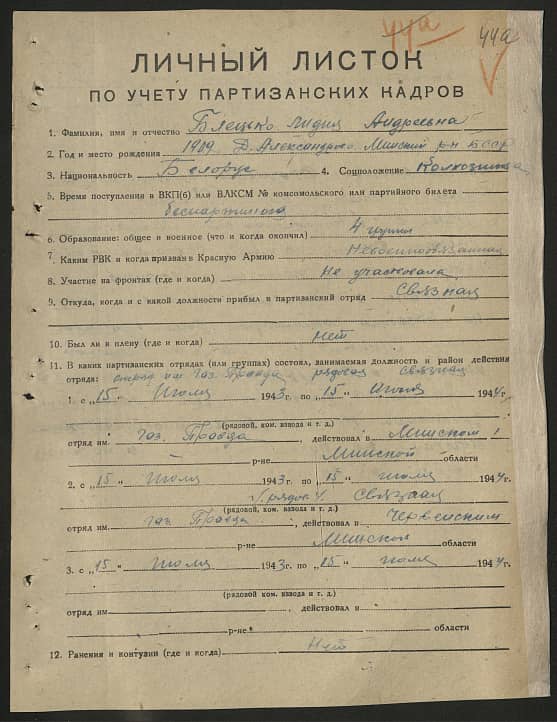 44а 44а
ЛИЧНЫЙ ЛИСТОК
ПО УЧЕТУ ПАРТИЗАНСКИХ КАДРОВ
1. Фамилия, имя и отчество Блецько Лидия Андреевна
2. Год и место рождения 1909 Д. Александрово Минский р-н БССР
3. Национальность Белорус 4. Соцположение Колхозница
5. Время поступления в ВКП(б) или ВЛКСМ № комсомольского или партийного билета
беспартийная
6. Образование: общее и военное (что и когда окончил) 4 группы
7. Каким РВК и когда призван в Красную Армию Невоеннообязанная
8. Участие на фронтах (где и когда) Не участвовала
9. Откуда, когда и с какой должности прибыл в партизанский отряд Связная
10. Был ли в плену (где и когда) нет
11. В каких партизанских отрядах (или группах) состоял, занимаемая должность и район действия
отряда: отряд им Газ. Правда рядовая связная
1. с „15" Июля 1943 г. по „15" Июля 1944 г.
(рядовой, ком. взвода и т. д.)
отряд им. Газ. Правда, действовал в Минском
р-не Минской области
2. с „15" июля 1943 г. по „15" июля 1944 г.
рядов. Связная
(рядовой, ком. взвода и т. д.)
отряд им. газ Правда, действовал в Червенским
р-не Минской области
3. с „15" июля 1943 г. по „15" июля 1944 г.
(рядовой, ком. взвода и т. д.)
отряд им, действовал в
р-не области
12. Ранения и контузии (где и когда) Нет